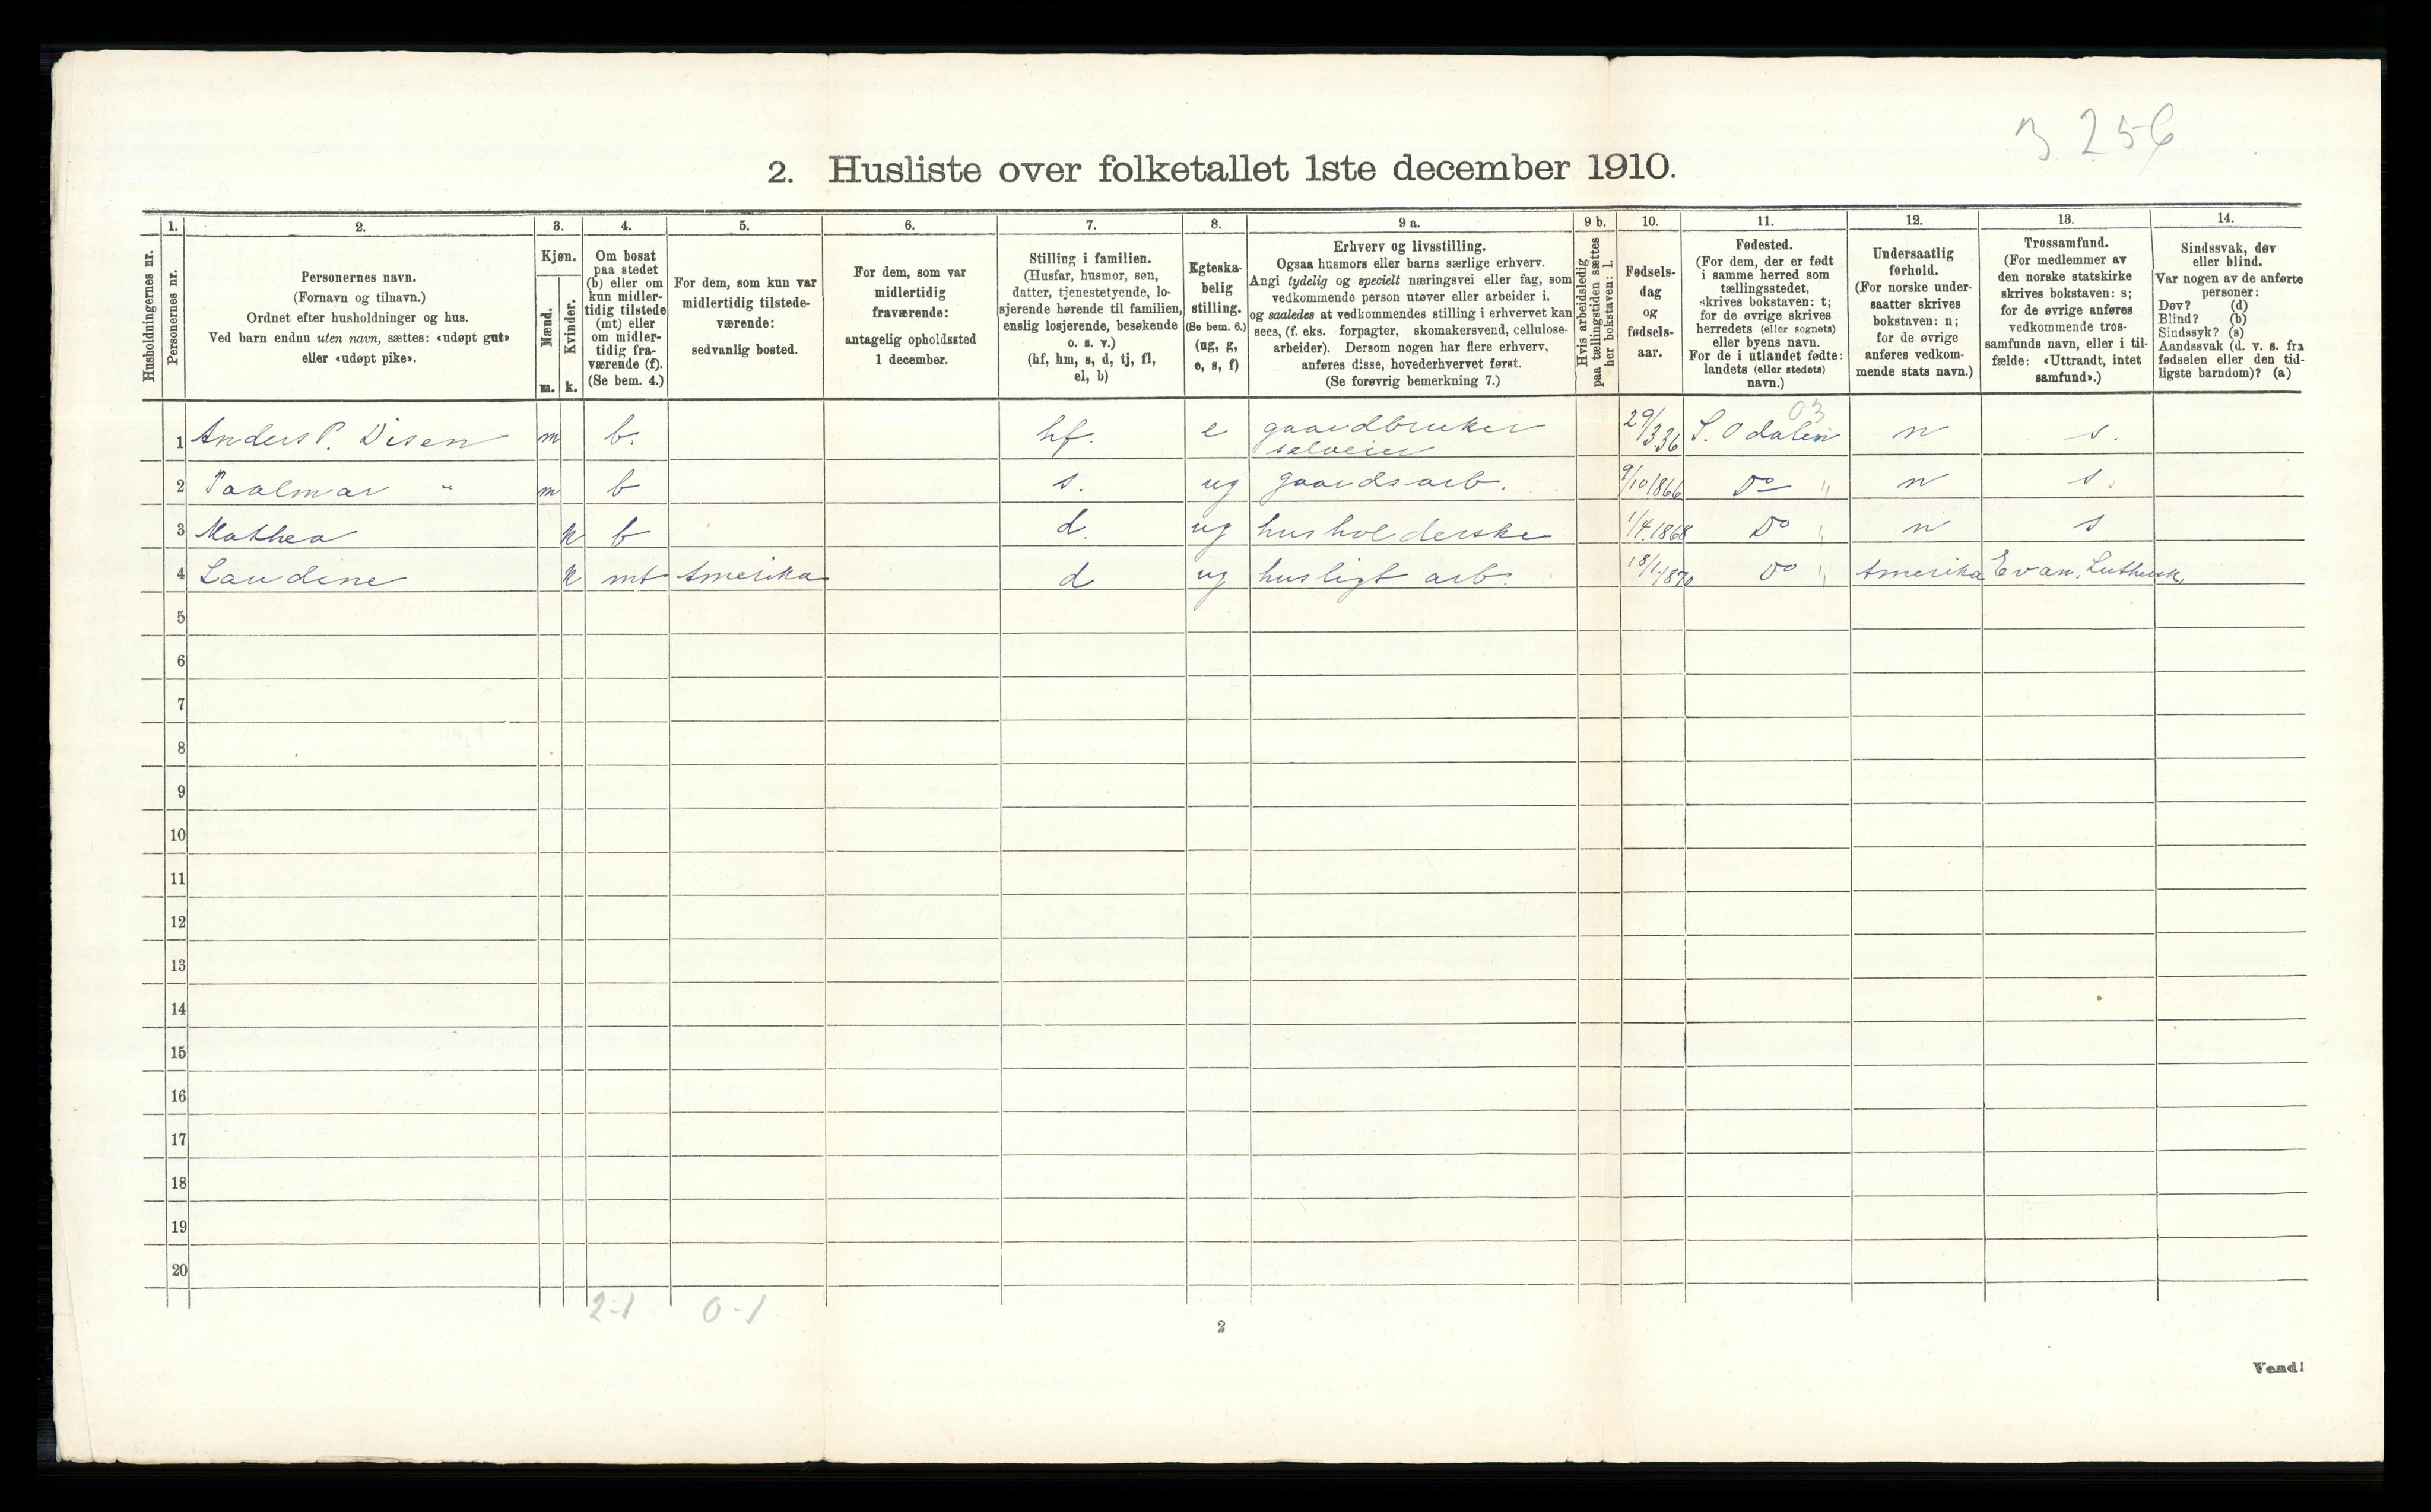 3 256
2. Husliste over folketallet 1ste december 1910.
Husholdningernes nr.
1.
Personernes nr.
2.
Personernes navn.
(Fornavn og tilnavn.)
Ordnet efter husholdninger og hus.
Ved barn endnu uten navn, sættes: «udøpt gut»
eller «udøpt pike».
3.
Kjøn.
Mænd.
m.
Kvinder.
k.
4.
Om bosat
paa stedet
(b) eller om
kun midler-
tidig tilstede
(mt) eller
om midler-
tidig fra-
værende (f).
(Se bem. 4.)
5.
For dem, som kun var
midlertidig tilstede-
værende:
sedvanlig bosted.
6.
For dem, som var
midlertidig
fraværende:
antagelig opholdssted
1 december.
7.
Stilling i familien.
(Husfar, husmor, søn,
datter, tjenestetyende, lo-
sjerende hørende til familien,
enslig losjerende, besøkende
o. s. v.)
(hf, hm, s, d, tj, fl,
el, b)
8.
Egteska-
belig
stilling.
(Se bem. 6.)
(ug, g,
e, s, f)
9 a.
Erhverv og livsstilling.
Ogsaa husmors eller barns særlige erhverv.
Angi tydelig og specielt næringsvei eller fag, som
vedkommende person utøver eller arbeider i,
og saaledes at vedkommendes stilling i erhvervet kan
sees, (f. eks. forpagter, skomakersvend, cellulose-
arbeider). Dersom nogen har flere erhverv,
anføres disse, hovederhvervet først.
(Se forøvrig bemerkning 7.)
9 b.
Hvis arbeidsledig
paa tællingstiden sættes
her bokstaven: l.
10.
Fødsels-
dag
og
fødsels-
aar.
11.
Fødested.
(For dem, der er født
i samme herred som
tællingsstedet,
skrives bokstaven: t;
for de øvrige skrives
herredets (eller sognets)
eller byens navn.
For de i utlandet fødte:
landets (eller stedets)
navn.)
12.
Undersaatlig
forhold.
(For norske under-
saatter skrives
bokstaven: n;
for de øvrige
anføres vedkom-
mende stats navn.)
13.
Trossamfund.
(For medlemmer av
den norske statskirke
skrives bokstaven: s;
for de øvrige anføres
vedkommende tros-
samfunds navn, eller i til-
fælde: «Uttraadt, intet
samfund».)
14.
Sindssvak, døv
eller blind.
Var nogen av de anførte
personer:
Døv? (d)
Blind? (b)
Sindssyk? (s)
Aandssvak (d. v. s. fra
fødselen eller den tid-
ligste barndom)? (a)
03
1 Anders P. Disen m b. hf. e gaardbruker selveier 29/3.36 S. Odalen n s.
2 Paalmar " m b s. ug gaardsarb. 9/10 1866 Do " n s.
3 Mathea k b d. ug husholderske 1/4.1868 Do " n s
4 Laudine k mt Amerika d ug husligt arb. 18/1-1870 Do " Amerika Evan. Luthersk.
5
6
7
8
9
10
11
12
13
14
15
16
17
18
19
20
2-1 0-1
2
Vend!